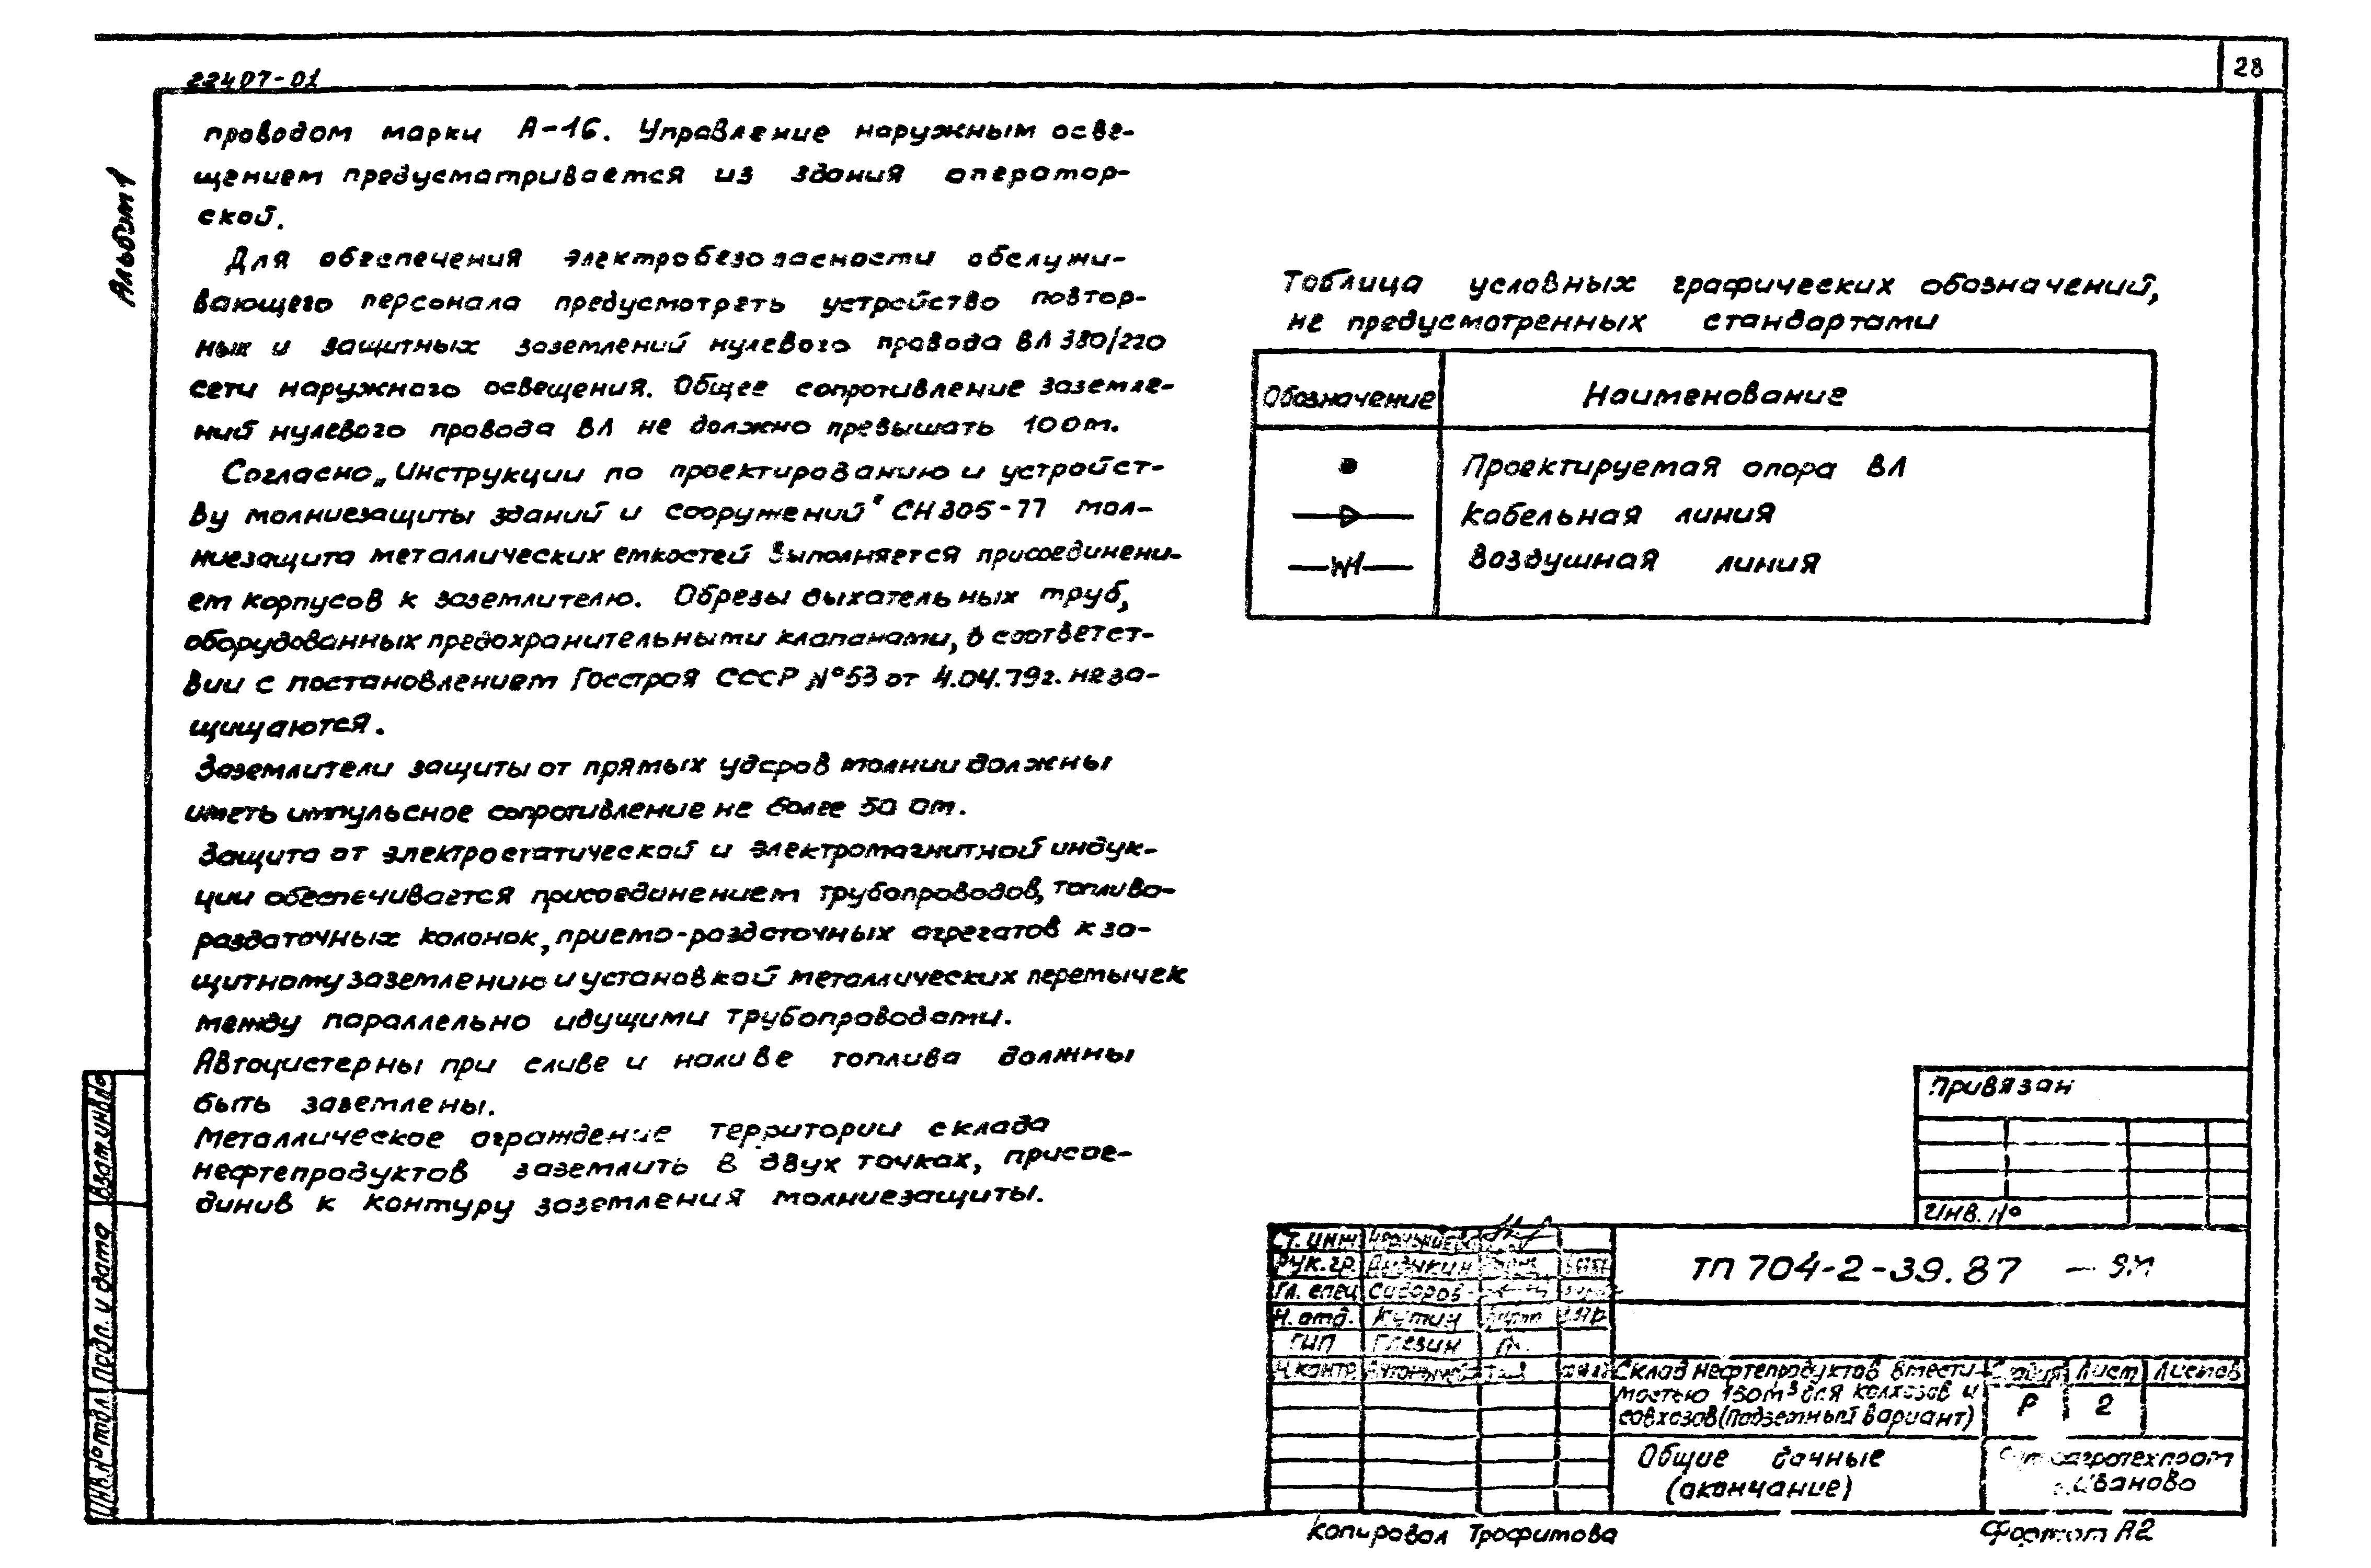 22407-01
28
Альбом 1
проводом марки А-16. Управление наружным осве-
щением предусматривается из здания оператор-
ской.
Для обеспечения электробезопасности обслужи-
вающего персонала предусмотреть устройство повтор-
ных и защитных заземлений нулевого провода ВЛ 380/220
сети наружного освещения. Общее сопротивление заземле-
ний нулевого провода ВЛ не должно превышать 10 Ом.
Согласно „Инструкции по проектированию и устройст-
ву молниезащиты зданий и сооружений" СН 305-77 мол-
ниезащита металлических емкостей выполняется присоединени-
ем корпусов к заземлителю. Обрезы дыхательных труб,
оборудованных предохранительными клапанами, в соответст-
вии с постановлением Госстроя СССР №53 от 4.04.79г. не за-
щищаются.
Заземлители защиты от прямых ударов молнии должны
иметь импульсное сопротивление не более 50 Ом.
Защита от электростатической и электромагнитной индук-
ции обеспечивается присоединением трубопроводов, топливо-
раздаточных колонок, приемо-раздаточных агрегатов к за-
щитному заземлению и установкой металлических перемычек
между параллельно идущими трубопроводами.
Автоцистерны при сливе и наливе топлива должны
быть заземлены.
Металлическое ограждение территории склада
нефтепродуктов заземлить в двух точках, присое-
динив к контуру заземления молниезащиты.
Таблица условных графических обозначений,
не предусмотренных стандартами
Обозначение Наименование
Проектируемая опора ВЛ
Кабельная линия
Воздушная линия
Привязан
Инв. №
Ст. инж.
Рук. гр.
Гл. спец. Сидоров
Н. отд. Кутин
ГИП Глезин
Н. контр.
ТП 704-2-39.87 - ЭМ
Склад нефтепродуктов вмести-
мостью 150 м³ для колхозов и
совхозов (подземный вариант)
Стадия Лист Листов
Р 2
Общие данные
(окончание)
Иваново
Инв. № подл. Подп. и дата Взам. инв. №
Копировал Трофимова
Формат А2